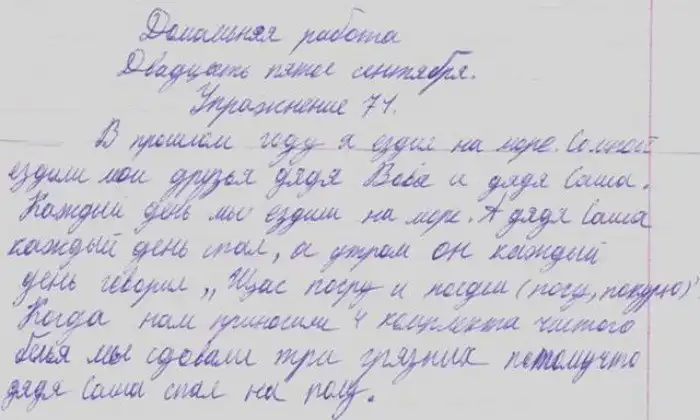 Домашняя работа
Двадцать пятое сентября.
Упражнение 71.
В прошлом году я ездил на море. Со мной
ездили мои друзья дядя Вова и дядя Саша.
Каждый день мы ездили на море. А дядя Саша
каждый день спал, а утром он каждый
день говорил „Щас посру и поедем (посу, покурю)"
Когда нам приносили 4 комплекта чистого
белья мы сдовали три грязних потомучто
дядя Саша спал на полу.